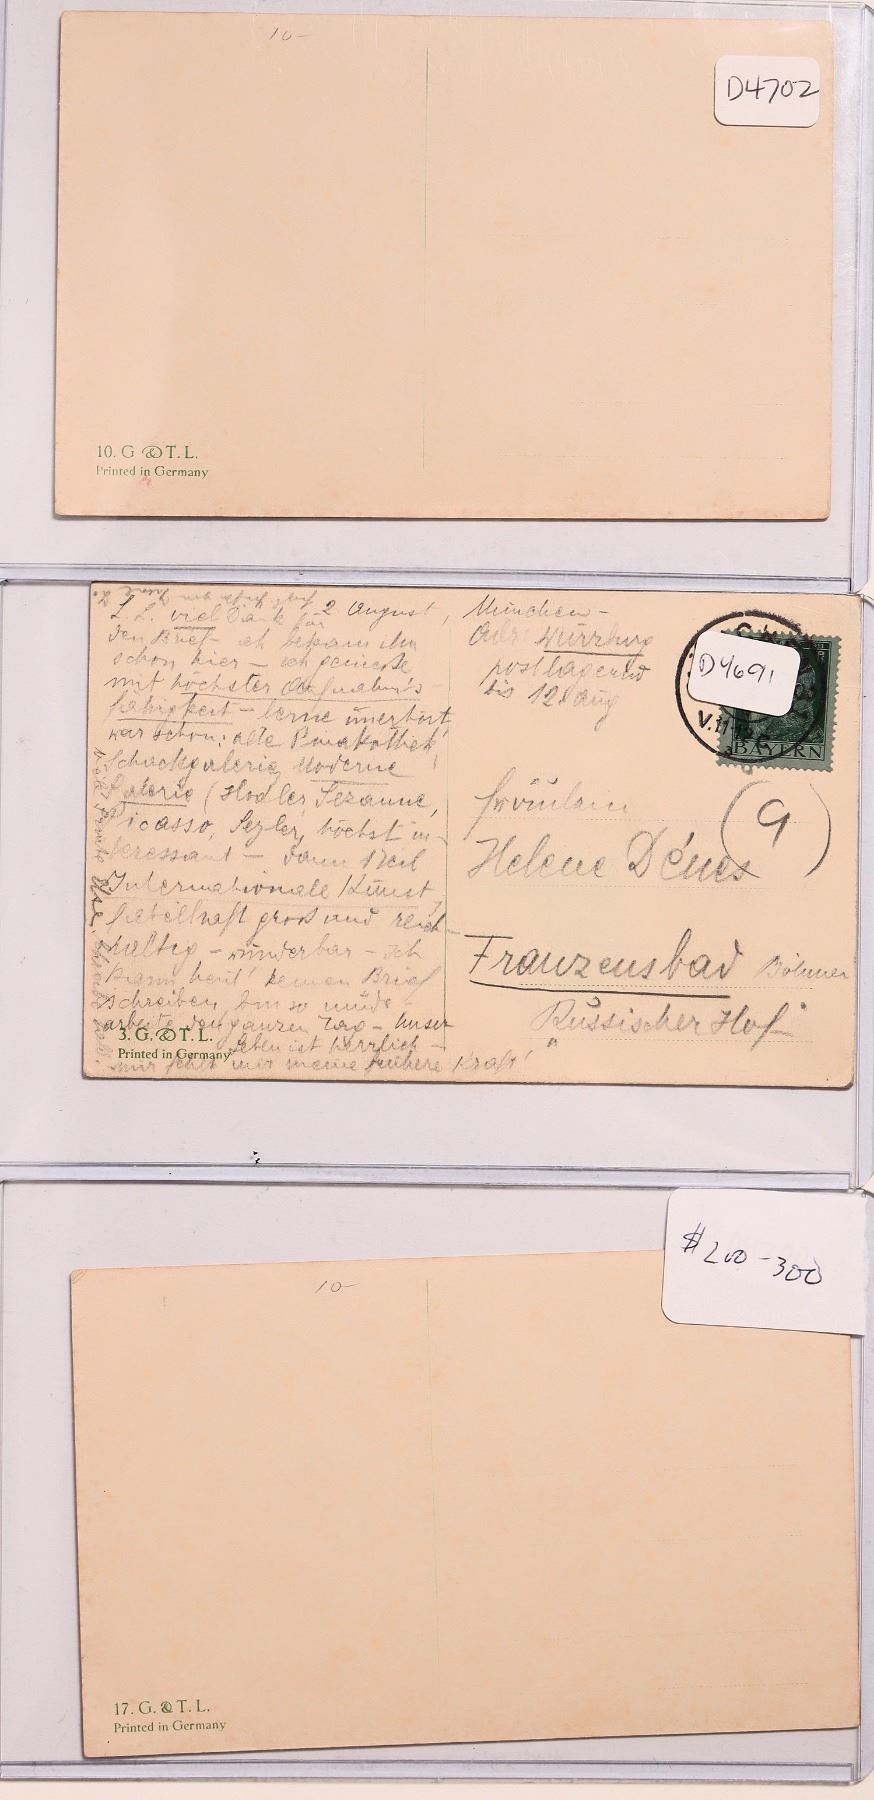 10-
D4702
10. G & T. L.
Printed in Germany
L. L. viel Dank für
2. August,
den Brief - ich bekam ihn
schon hier - ich geniesse
mit höchster Aufnahms-
fähigkeit - lerne unerhört,
war schon: alte Pinakothek,
Schackgalerie, Moderne
Galerie (Hodler, Sezanne,
Picasso, höchst in-
teressant - dann
Internationale Kunst,
fabelhaft gross und reich-
haltig - wunderbar - Ich
kann heut' keinen Brief
schreiben, bin so müde
arbeite den ganzen Tag - Unser
Leben ist herrlich -
mir fehlt nur meine frühere Kraft!
3. G. & T. L.
Printed in Germany
München -
Adr: Würzburg
postlagernd
bis 12. Aug
D4691
BAYERN
Fräulein
(9)
Helene Dénes
Franzensbad Böhmen
"Russischer Hof"
$200-300
10-
17. G. & T. L.
Printed in Germany